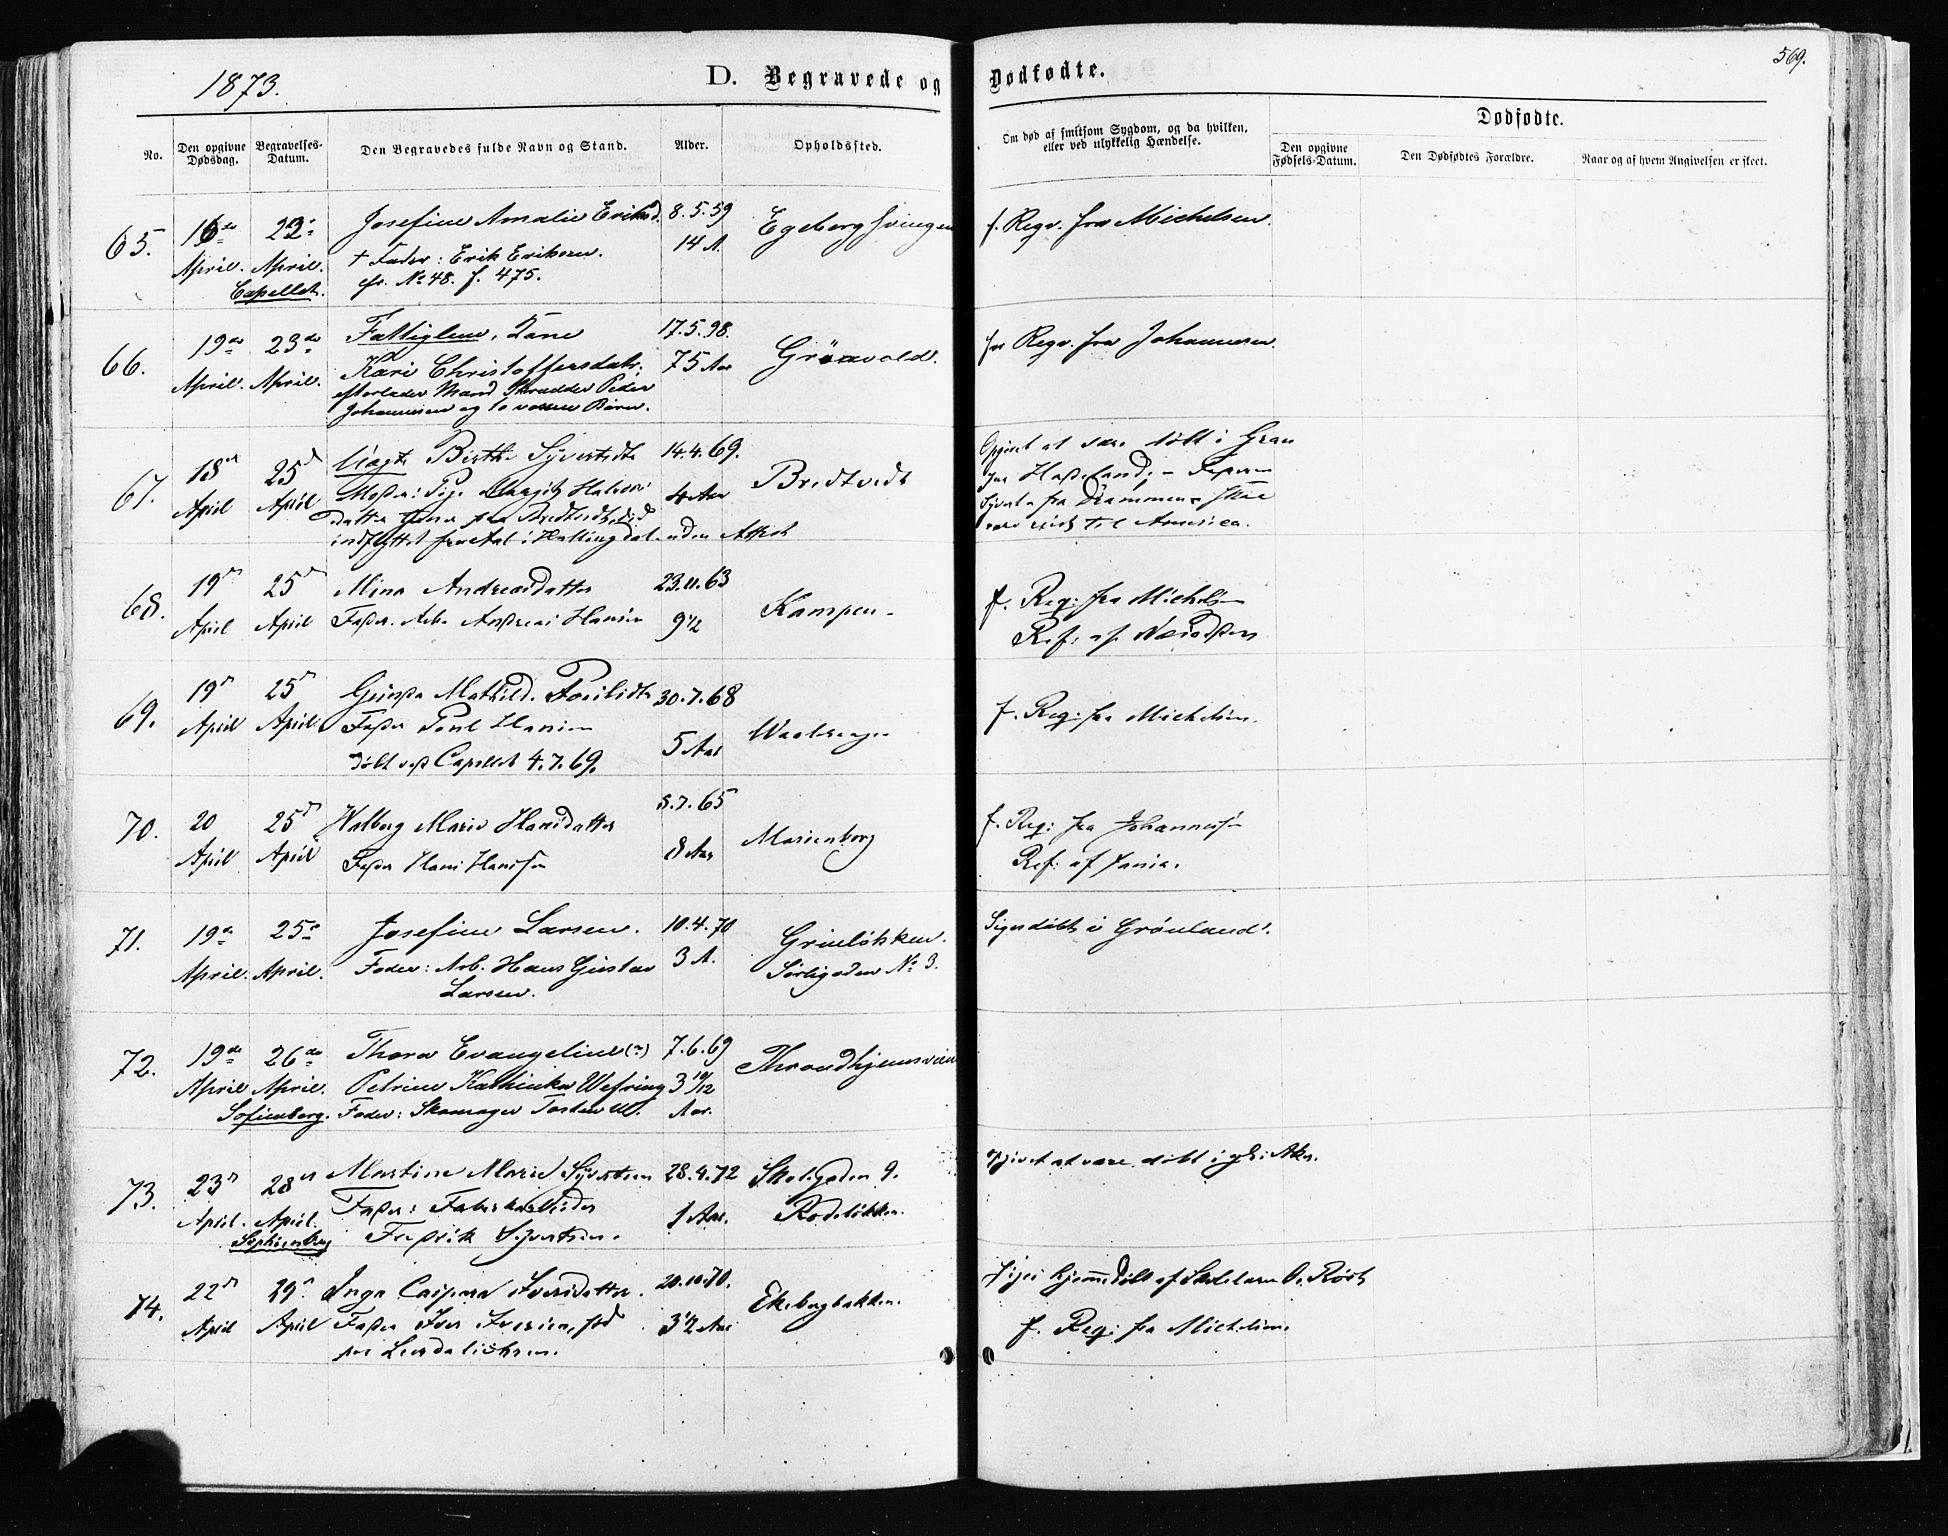 1873.
D. Begravede og Dødfødte.
569.
No.
Den opgivne Dødsdag.
Begravelses-Datum.
Den Begravedes fulde Navn og Stand.
Alder.
Opholdssted.
Om død af smitsom Sygdom, og da hvilken, eller ved ulykkelig Hændelse.
Dødfødte.
Den opgivne Fødsels-Datum.
Den Dødfødtes Forældre.
Naar og af hvem Angivelsen er skeet.
65.
16de April.
22 April. Capellet.
Josefine Amalie Eriksd.
+ Fader: Erik Eriksen.
cfr. No 48. f. 475.
8.5.59
14 A.
Egebergsvingen
f. Regn. fra Michelsen.
66.
19de April.
23de April.
Fattiglem, Kone
Kari Christoffersdatr.
efterlader Mand Skrædder Peder
Johannesen og to voxne Børn.
17.5.98.
75 Aar
Grønvold.
Regn. fra Johannesen
67.
18 April
25 April
Birthe Syvertsdtr
Moder: Pige Margit Halvors
datter
indflyttet fra Aal i Hallingdal uden Attest
14.4.69.
4 Aar
Bredtvedt
Opgivet at være døbt i Gran
Hadeland. - Faderen
Syvert fra Drammen skal
være reist til America.
68.
19 April
25 April
Mina Andreasdatter
Fader. Arb. Andreas Hansen
23.11.63
9 1/2
Kampen
f. Reg: fra Michelsen
Ref: af
69.
19 April
25 April
Mathild.
Fader Poul Hansen
døbt ved Capellet 4.7.69.
30.7.68
5 Aar
f. Reg: fra Michelsen.
70.
20 April
25 April
Valborg Marie Hansdatter
Fader Hans Hansen
8.7.65
8 Aar
Marienborg
f. Reg: fra Johannesen
Ref: af
71.
19de April.
25de April.
Josefine Larsen.
Fader: Arb. Hans Gustav
Larsen.
10.4.70
3 A.
Grünløkken.
Sørligaden No 3.
Siges døbt i Grønland.
72.
19de April
26de April. Sofienberg.
Thora Evangeline (?)
Petrine Kathinka Wefring
Fader: Skomager Torsten W.
7.6.69
3 10/12
Aar.
Throndhjemsveien
73.
23 April.
28 April. Sophienberg
Martine Marie Syvertsen
Fader: Fabrikarbeider
Fredrik Syvertsen.
28.4.72
1 Aar.
Skolegaden 9.
Rodeløkken.
opgivet at være døbt i Aker.
74.
22 April
29 April
Inga Caspara Iversdatter.
Fader Iver Iversen,
20.10.70.
3 1/2 Aar
Ekebergbakken.
Siges hjemmedøbt af Skolelærer O. Røst
f. Reg: fra Michelsen.